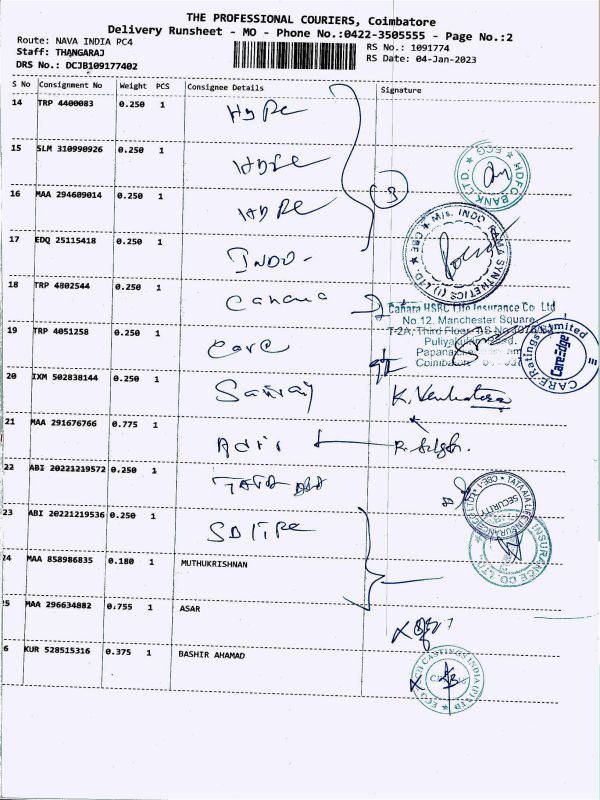 THE PROFESSIONAL COURIERS, Coimbatore
Delivery Runsheet - MO - Phone No.:0422-3505555 - Page No.:2
Route: NAVA INDIA PC4
Staff: THANGARAJ
DRS No.: DCJB109177402
RS No.: 1091774
RS Date: 04-Jan-2023
S No Consignment No Weight PCS Consignee Details Signature
14 TRP 4400083 0.250 1
15 SLM 310990926 0.250 1
HDFC BANK LTD
16 MAA 294609014 0.250 1
3
17 EDQ 25115418 0.250 1 INDO-
M/s. INDO RAMA SYNTHETICS (I) LTD. CBE
18 TRP 4802544 0.250 1 Canara
Canara HSBC Life Insurance Co Ltd
No 12, Manchester Square
Third Floor
19 TRP 4051258 0.250 1 Care
CARE Ratings Limited
CareEdge
20 IXM 502838144 0.250 1
K. Venkat
21 MAA 291676766 0.775 1
22 ABI 20221219572 0.250 1 TATA
TATA AIA LIFE INSURANCE CO LTD
SECURITY
23 ABI 20221219536 0.250 1
INSURANCE CO. LTD.
24 MAA 858986835 0.180 1 MUTHUKRISHNAN
5 MAA 296634882 0.755 1 ASAR
6 KUR 528515316 0.375 1 BASHIR AHAMAD
CASTINGS INDIA (P) LTD